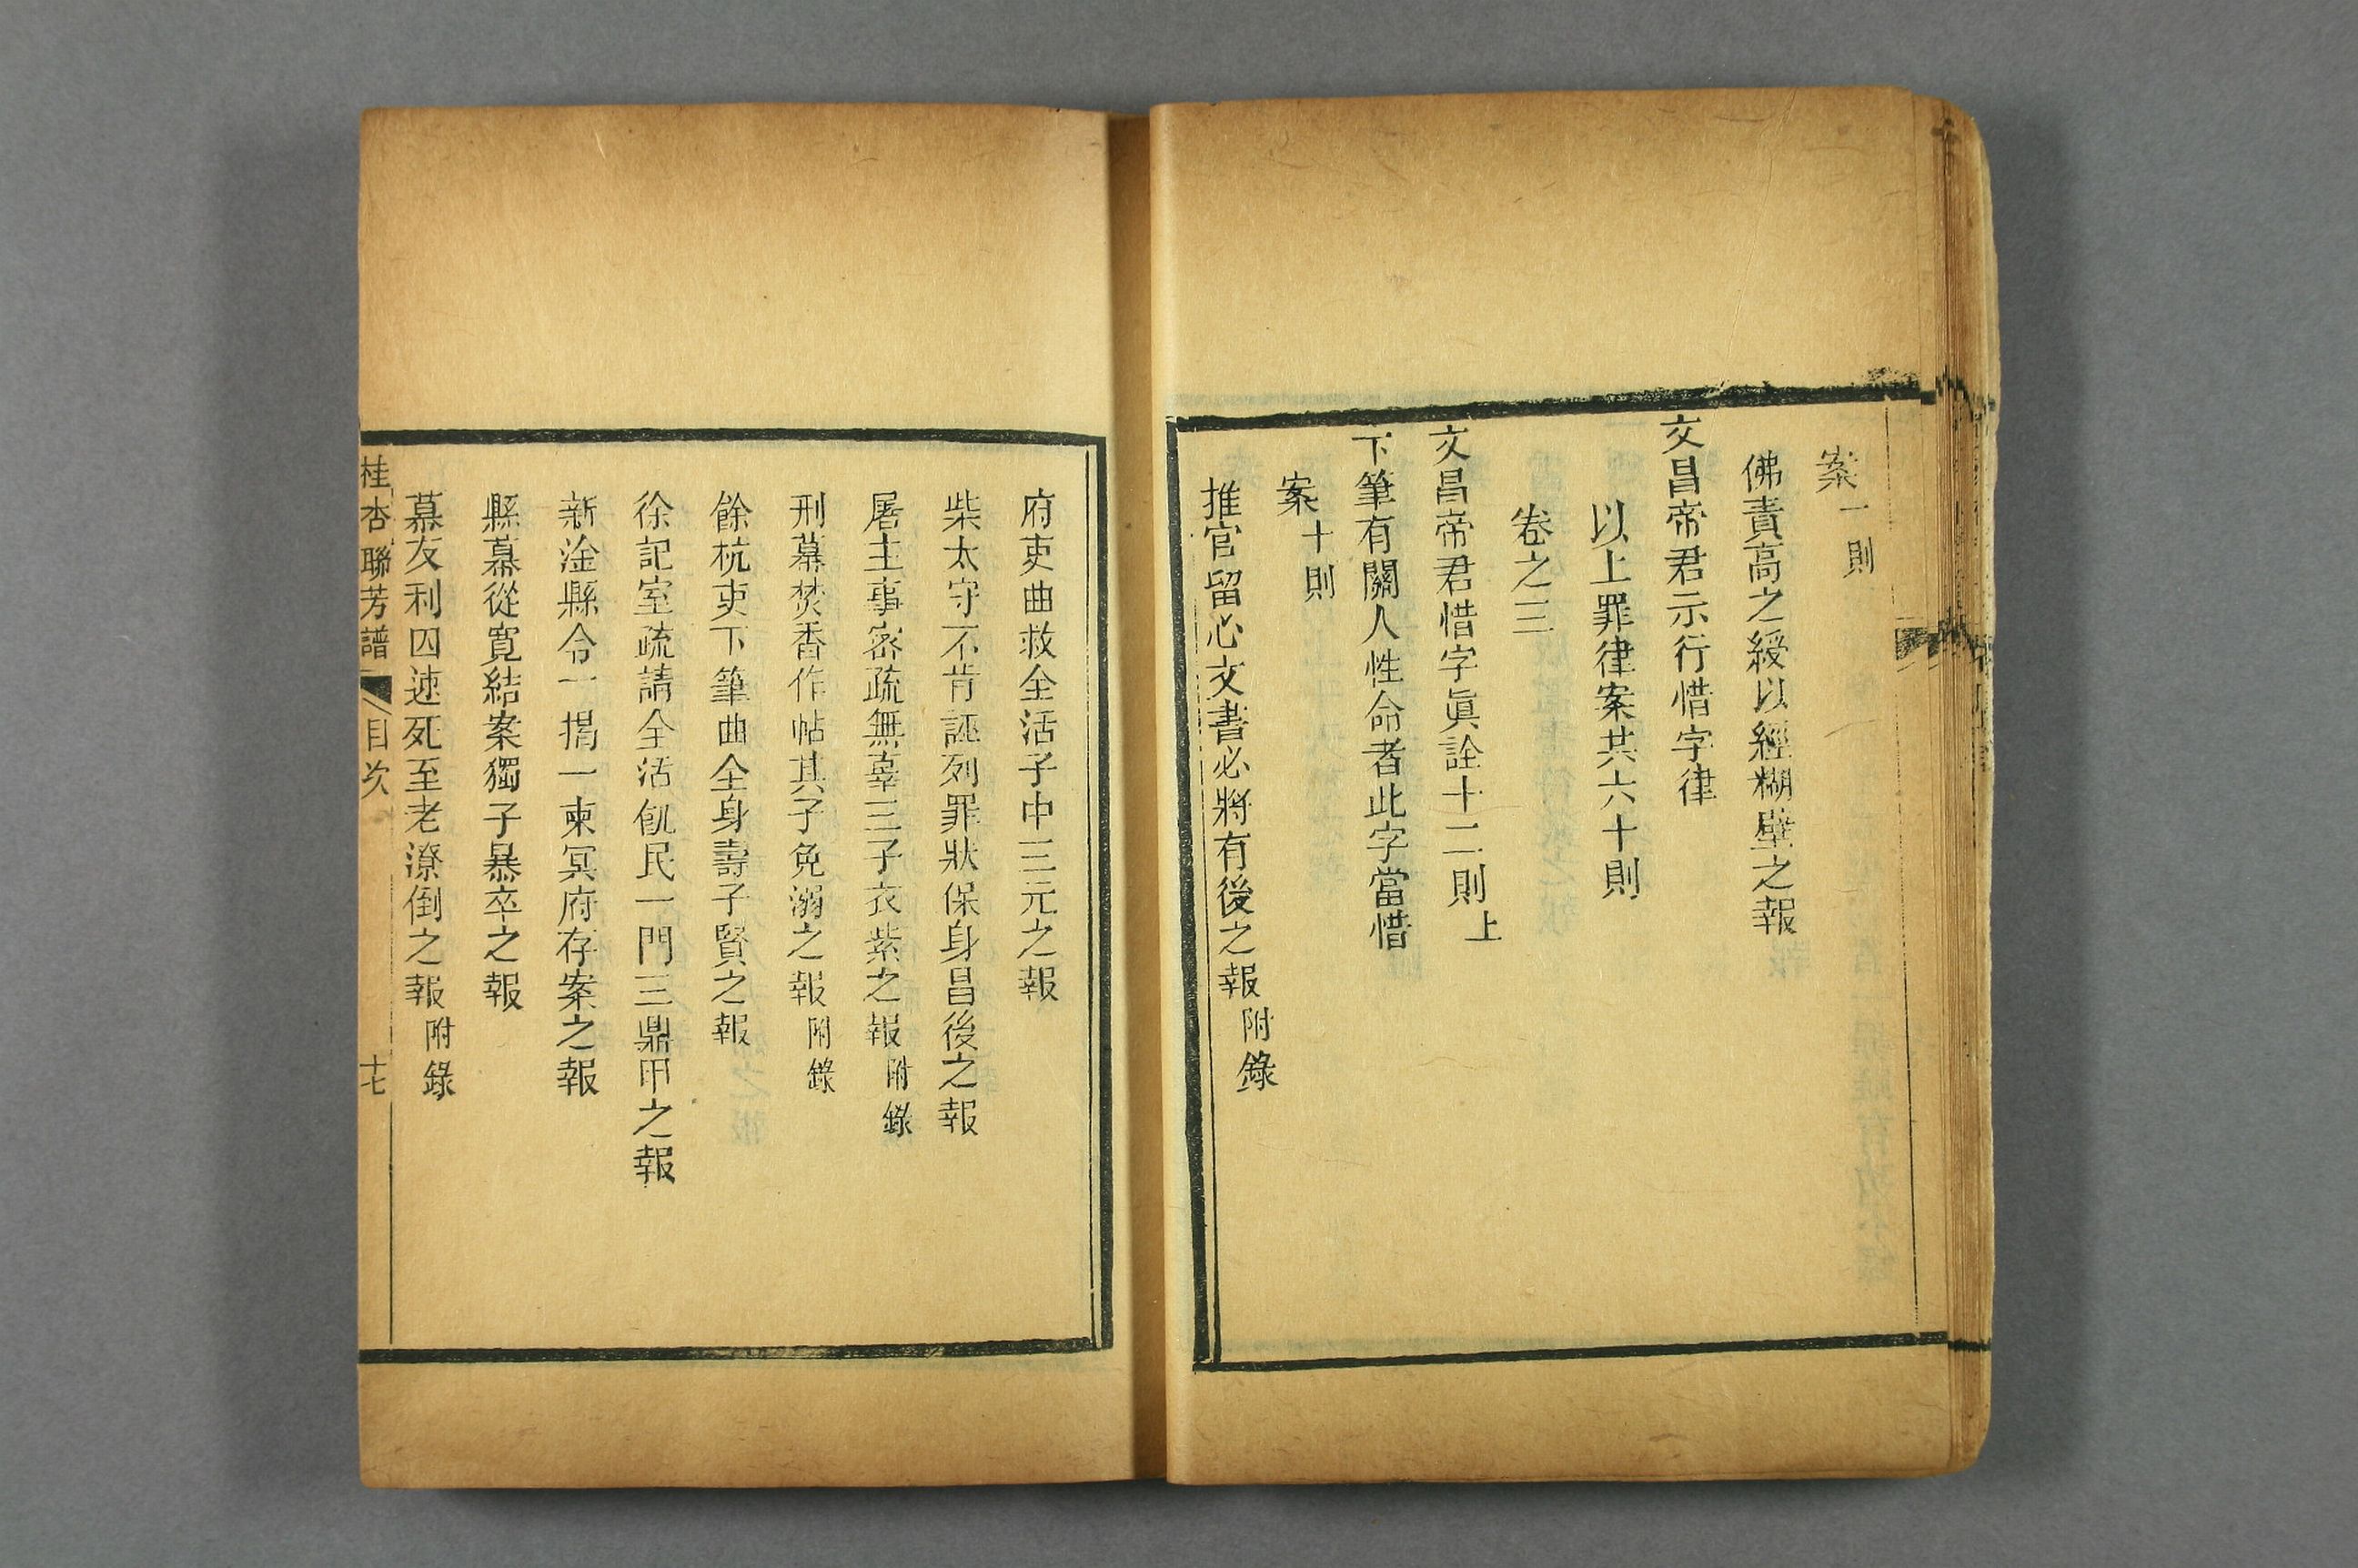 案一則
佛責高之綬以經糊壁之報
文昌帝君示行惜字律
以上罪律案共六十則
卷之三
文昌帝君惜字眞詮十二則上
下筆有關人性命者此字當惜
案十則
推官留心文書必將有後之報附錄
府吏曲救全活子中三元之報
柴太守不肯誣列罪狀保身昌後之報
屠主事密疏無辜三子衣紫之報附錄
刑幕焚香作帖其子免溺之報附錄
餘杭吏下筆曲全身壽子賢之報
徐記室疏請全活飢民一門三鼎甲之報
新淦縣令一揭一柬冥府存案之報
縣幕從寬結案獨子暴卒之報
幕友利囚速死至老潦倒之報附錄
桂杏聯芳譜 目次 十七